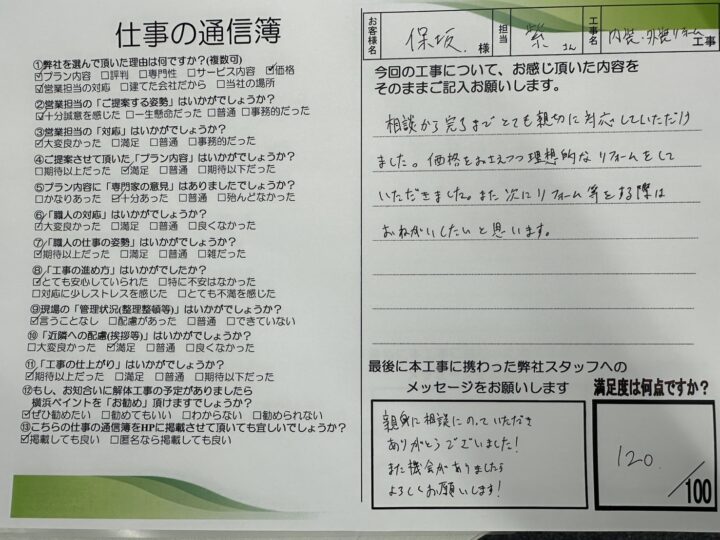 仕事の通信簿
①弊社を選んで頂いた理由は何ですか?(複数可)
☑プラン内容 □評判 □専門性 □サービス内容 ☑価格
☑営業担当の対応 □建てた会社だから □当社の場所
②営業担当の「ご提案する姿勢」はいかがでしょうか?
☑十分誠意を感じた □一生懸命だった □普通 □事務的だった
③営業担当の「対応」はいかがでしょうか?
☑大変良かった □満足 □普通 □事務的だった
④ご提案させて頂いた「プラン内容」はいかがでしょうか?
□期待以上だった ☑満足 □普通 □期待以下だった
⑤プラン内容に「専門家の意見」はありましたでしょうか?
□かなりあった ☑十分あった □普通 □殆んどなかった
⑥「職人の対応」はいかがでしょうか?
☑大変良かった □満足 □普通 □良くなかった
⑦「職人の仕事の姿勢」はいかがでしょうか?
☑期待以上だった □満足 □普通 □雑だった
⑧「工事の進め方」はいかがでしたか?
☑とても安心していられた □特に不安はなかった
□対応に少しストレスを感じた □とても不満を感じた
⑨現場の「管理状況(整理整頓等)」はいかがでしょうか?
☑言うことなし □配慮があった □普通 □できていない
⑩「近隣への配慮(挨拶等)」はいかがでしょうか?
□大変良かった ☑満足 □普通 □良くなかった
⑪「工事の仕上がり」はいかがでしょうか?
☑期待以上だった □満足 □普通 □期待以下だった
⑫もし、お知合いに解体工事の予定がありましたら
横浜ペイントを「お勧め」頂けますでしょうか?
☑ぜひ勧めたい □勧めてもいい □わからない □勧められない
⑬こちらの仕事の通信簿をHPに掲載させて頂いても宜しいでしょうか?
☑掲載しても良い □匿名なら掲載しても良い
お客様名 保坂 様 担当 紫 さん 工事名 内装・外装リフォーム 工事
今回の工事について、お感じ頂いた内容を
そのままご記入お願いします。
相談から完了までとても親切に対応していただけ
ました。価格をおさえつつ理想的なリフォームをして
いただきました。また次にリフォーム等をする際は
おねがいしたいと思います。
最後に本工事に携わった弊社スタッフへの
メッセージをお願いします
親身に相談にのっていただき
ありがとうございました!
また機会がありましたら
よろしくお願いします!
満足度は何点ですか?
120
/100